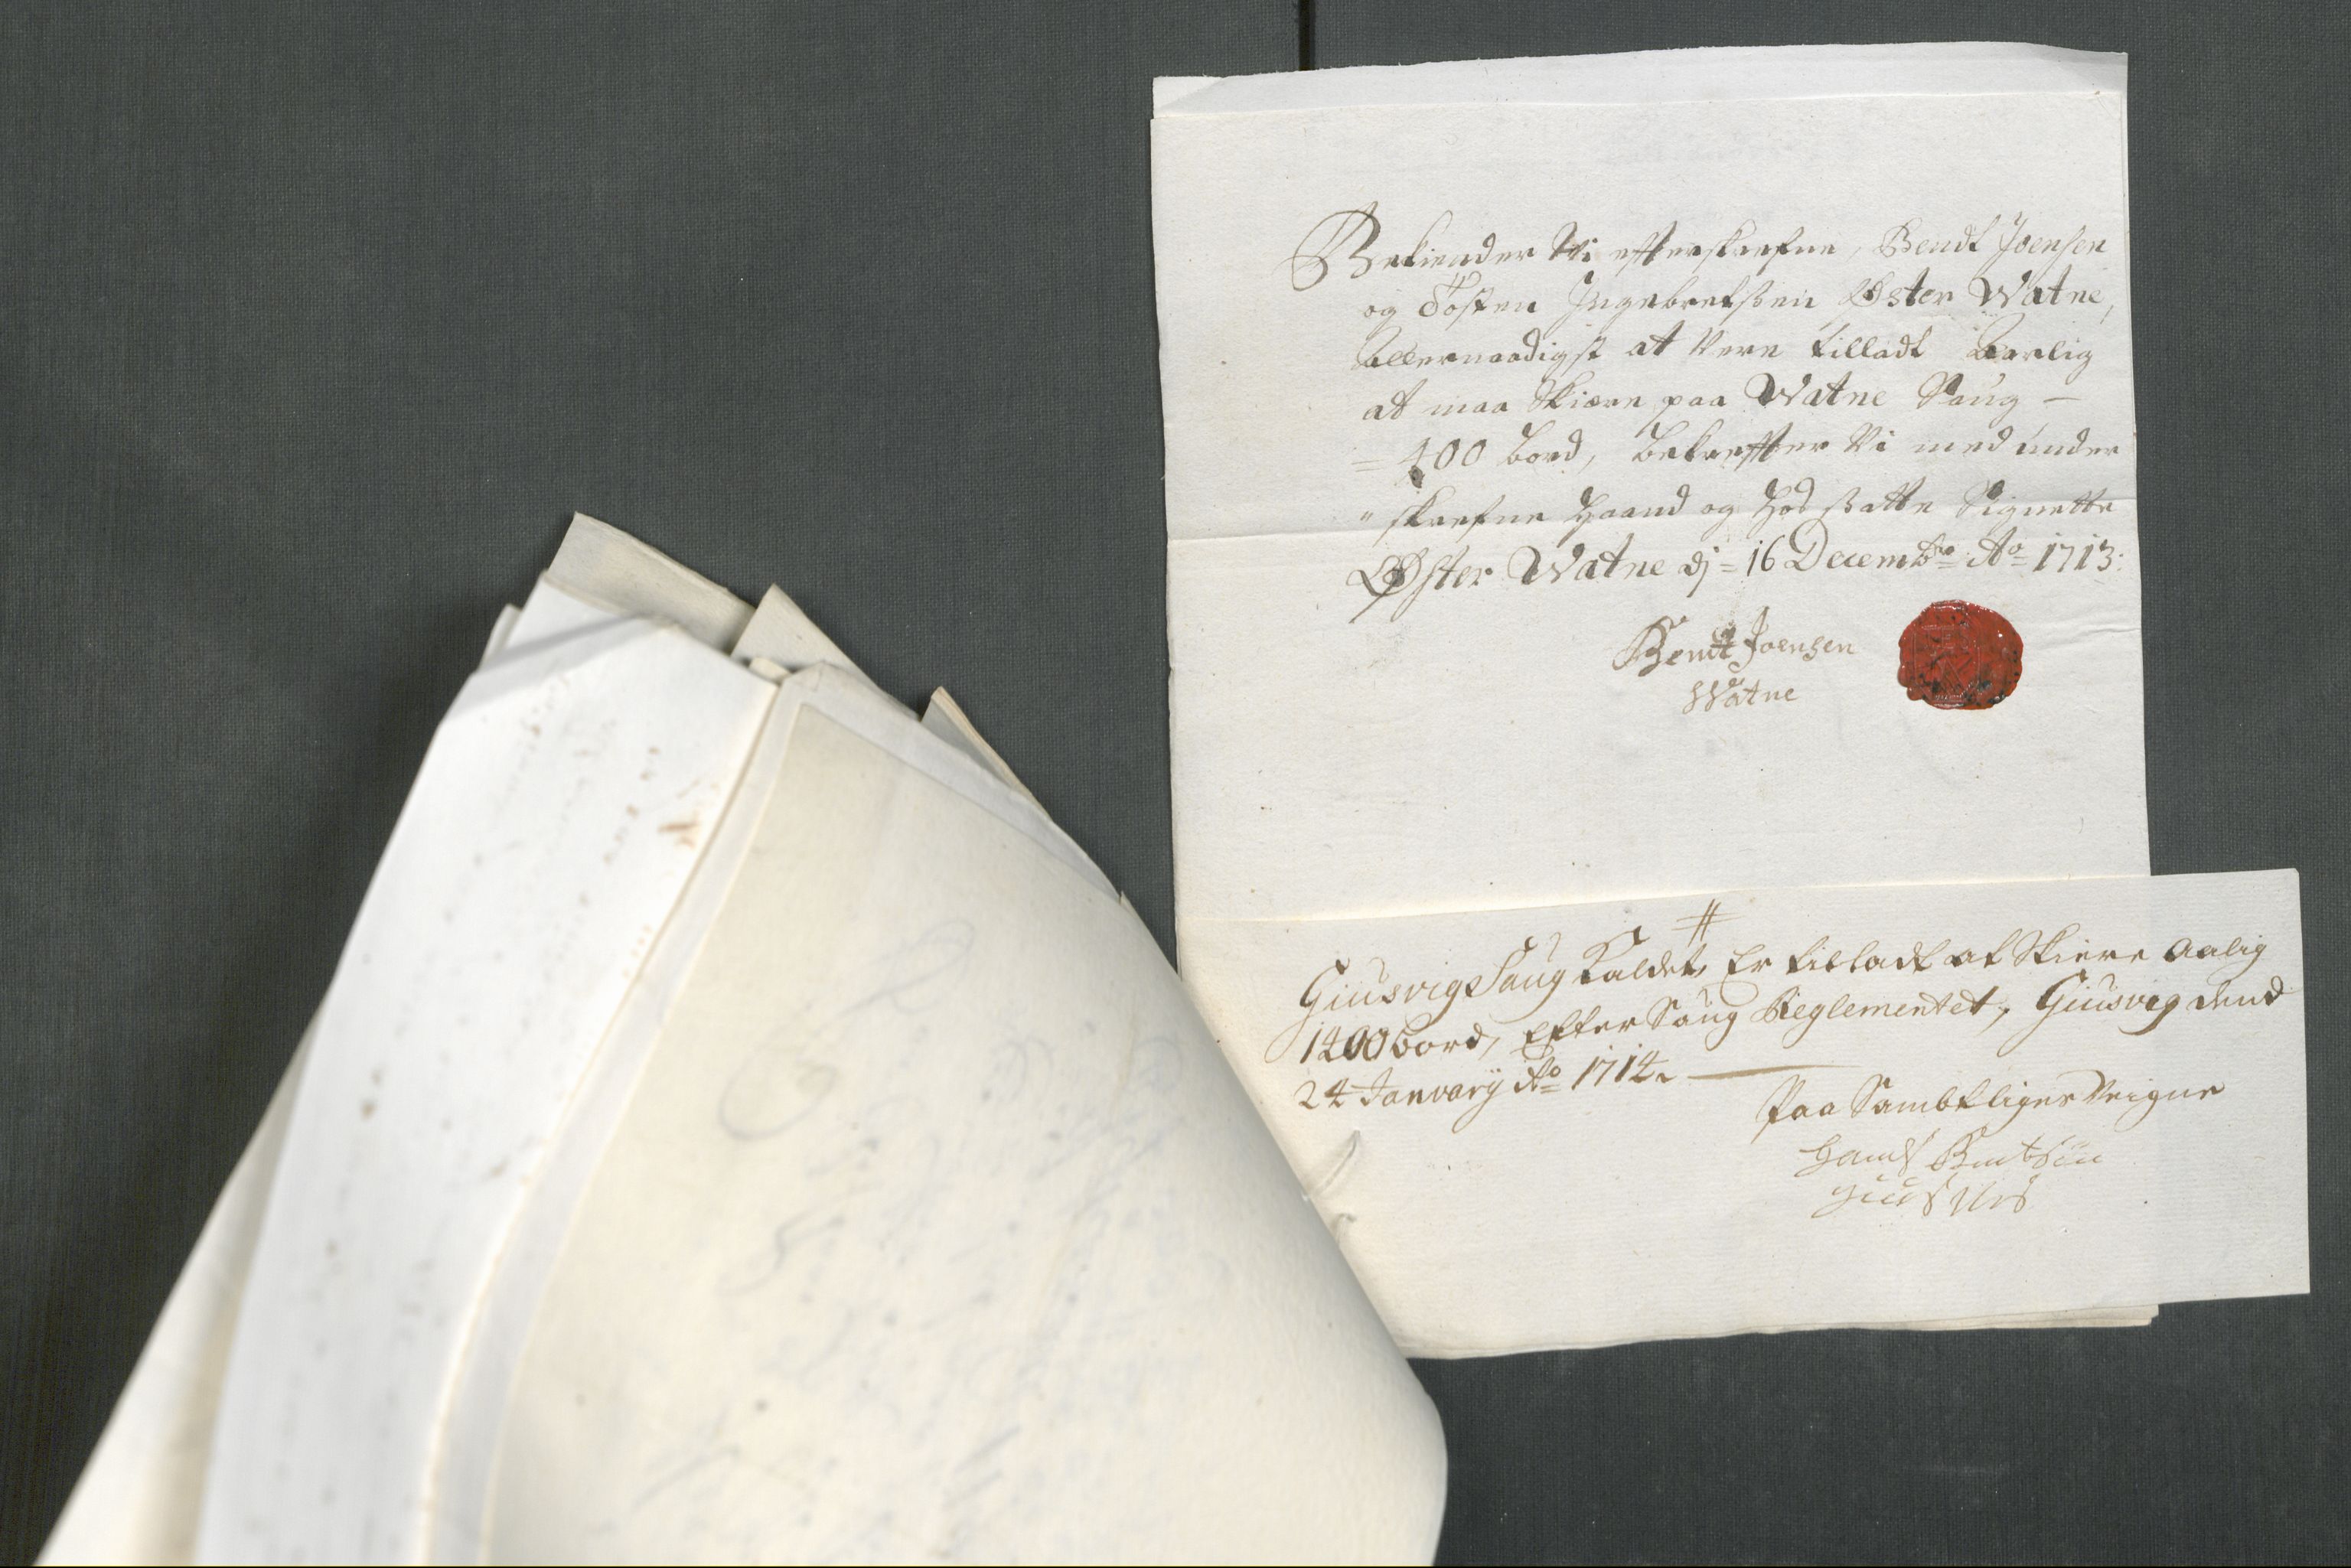 Bekiender Wi efterskrefne, Bendt Joensen
og Tosten Ingebretsßen Øster Watne,
allernaadigst at Vere tilladt aarlig
at maa Skiære paa Watne Saug –
= 400 bord, bekreffter Vi med under
" skrefne Haand og hos ßatte Signette
Øster Watne dj = 16 Decembr: Ao 1713:
Bendt Joensen
Watne
#
Giusvig Saug Kaldet, Er tilladt at Skiere aalig
1400 bord, Efter Saug Reglementet, Giusvig dend
24 Januarij Ao 1714.
Paa Sambtliges Veigne
Hands Bentsøn